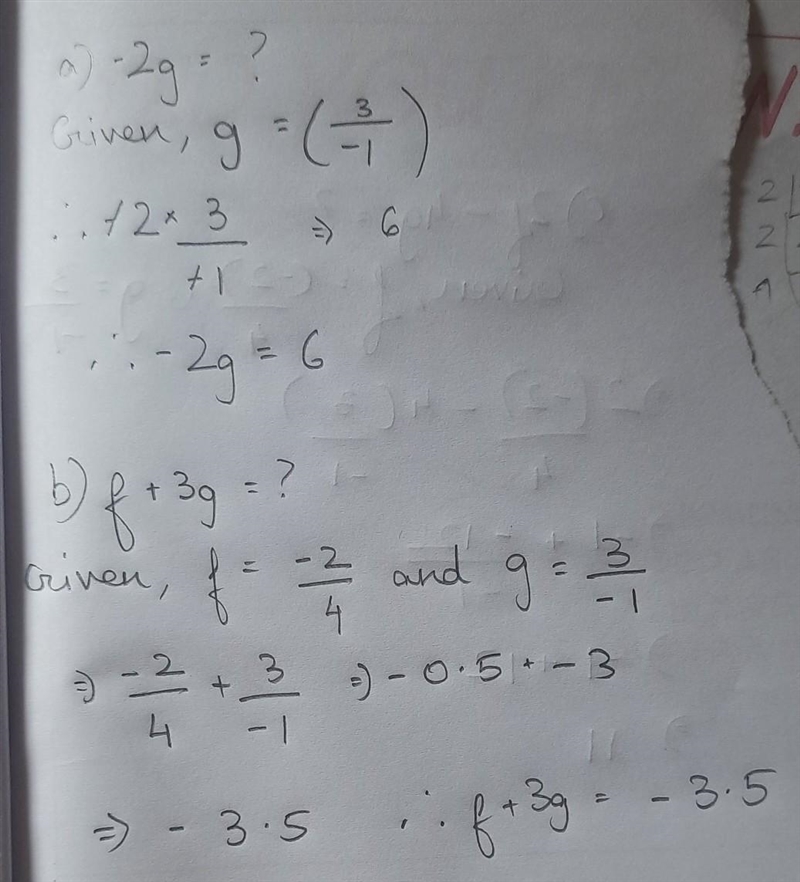 a) -2g = ?
Given, g = (3/-1)
∴ +2 × 3/+1 ⇒ 6
∴ -2g = 6
b) f + 3g = ?
Given, f = -2/4 and g = 3/-1
⇒ -2/4 + 3/-1 ⇒ - 0.5 + - 3
⇒ - 3.5 ∴ f + 3g = - 3.5
N.
2
2